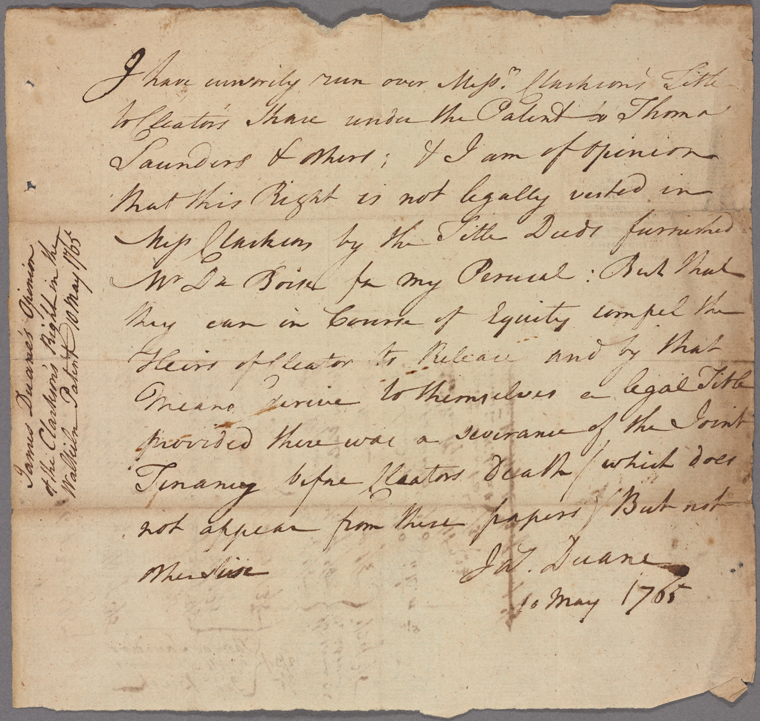 I have cursorily run over Mess.rs Clarkson's Title
to Cleator's Share under the Patent to Thomas
Saunders & others; & I am of Opinion
that this Right is not legally vested in
Mess Clarksons by the Title Deeds furnished
Mr Du Bois for my Perusal: But that
they can in Course of Equity compel the
Heirs of Cleator to Release and by that
Means derive to themselves a legal Title
provided there was a severance of the Joint
Tenancy before Cleators Death (which does
not appear from these papers) But not
otherwise
Jas. Duane
10 May 1765
James Duane's Opinion
of the Clarksons Right in the
Wallkiln Patent 10 May 1765